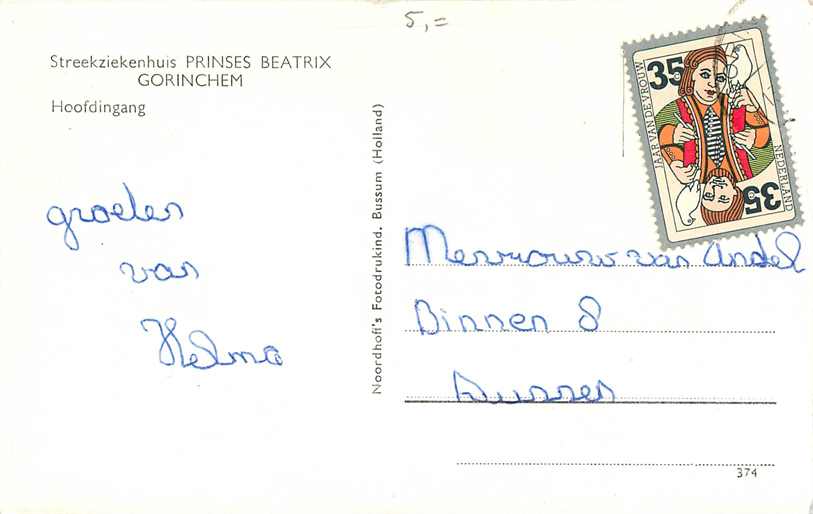 5,=
Streekziekenhuis PRINSES BEATRIX
GORINCHEM
Hoofdingang
groeten
van
Helma
Noordhoff's Fotodrukind. Bussum (Holland)
35
JAAR VAN DE VROUW
NEDERLAND
35
Mevrouw van Andel
Binnen 8
Dussen
374